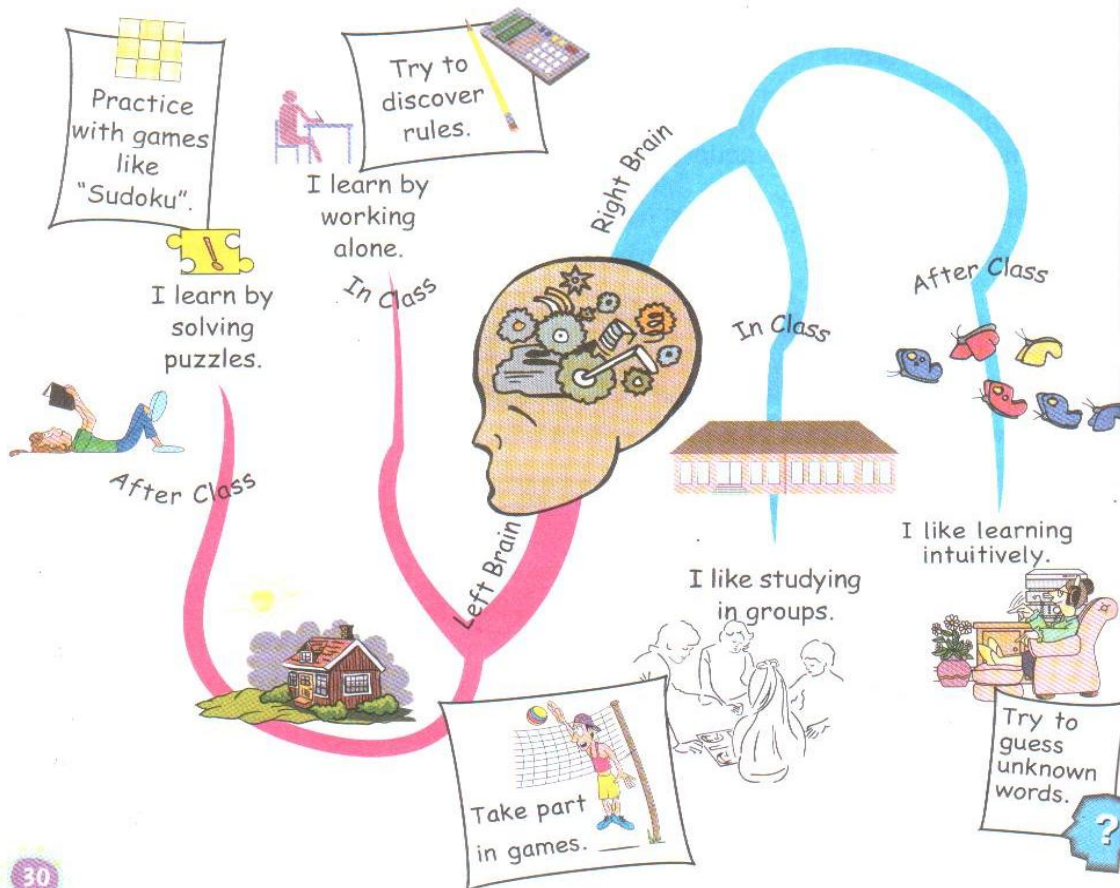 Practice
with games
like
"Sudoku".
Try to
discover
rules.
I learn by
working
alone.
In Class
I learn by
solving
puzzles.
After Class
Left Brain
Right Brain
In Class
After Class
I like studying
in groups.
I like learning
intuitively.
Take part
in games.
Try to
guess
unknown
words.
?
30